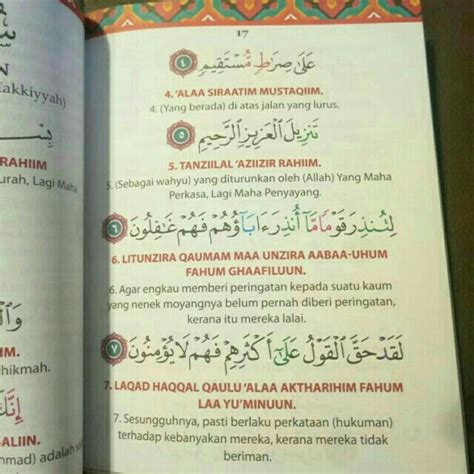 IN
akkiyyah)
بِسْـ
RAHIIM
urah, Lagi Maha
IM.
dhikmah.
إِنَّكَ
GALIIN.
mmad) adalah
17
عَلَىٰ صِرَٰطٍ مُّسْتَقِيمٍ ٤
4. 'ALAA SIRAATIM MUSTAQIIM.
4. (Yang berada) di atas jalan yang lurus.
تَنزِيلَ ٱلْعَزِيزِ ٱلرَّحِيمِ ٥
5. TANZIILAL 'AZIIZIR RAHIIM.
5. (Sebagai wahyu) yang diturunkan oleh (Allah) Yang Maha
Perkasa, Lagi Maha Penyayang.
لِتُنذِرَ قَوْمًا مَّآ أُنذِرَ ءَابَآؤُهُمْ فَهُمْ غَٰفِلُونَ ٦
6. LITUNZIRA QAUMAM MAA UNZIRA AABAA-UHUM
FAHUM GHAAFILUUN.
6. Agar engkau memberi peringatan kepada suatu kaum
yang nenek moyangnya belum pernah diberi peringatan,
kerana itu mereka lalai.
لَقَدْ حَقَّ ٱلْقَوْلُ عَلَىٰٓ أَكْثَرِهِمْ فَهُمْ لَا يُؤْمِنُونَ ٧
7. LAQAD HAQQAL QAULU 'ALAA AKTHARIHIM FAHUM
LAA YU'MINUUN.
7. Sesungguhnya, pasti berlaku perkataan (hukuman)
terhadap kebanyakan mereka, kerana mereka tidak
beriman.